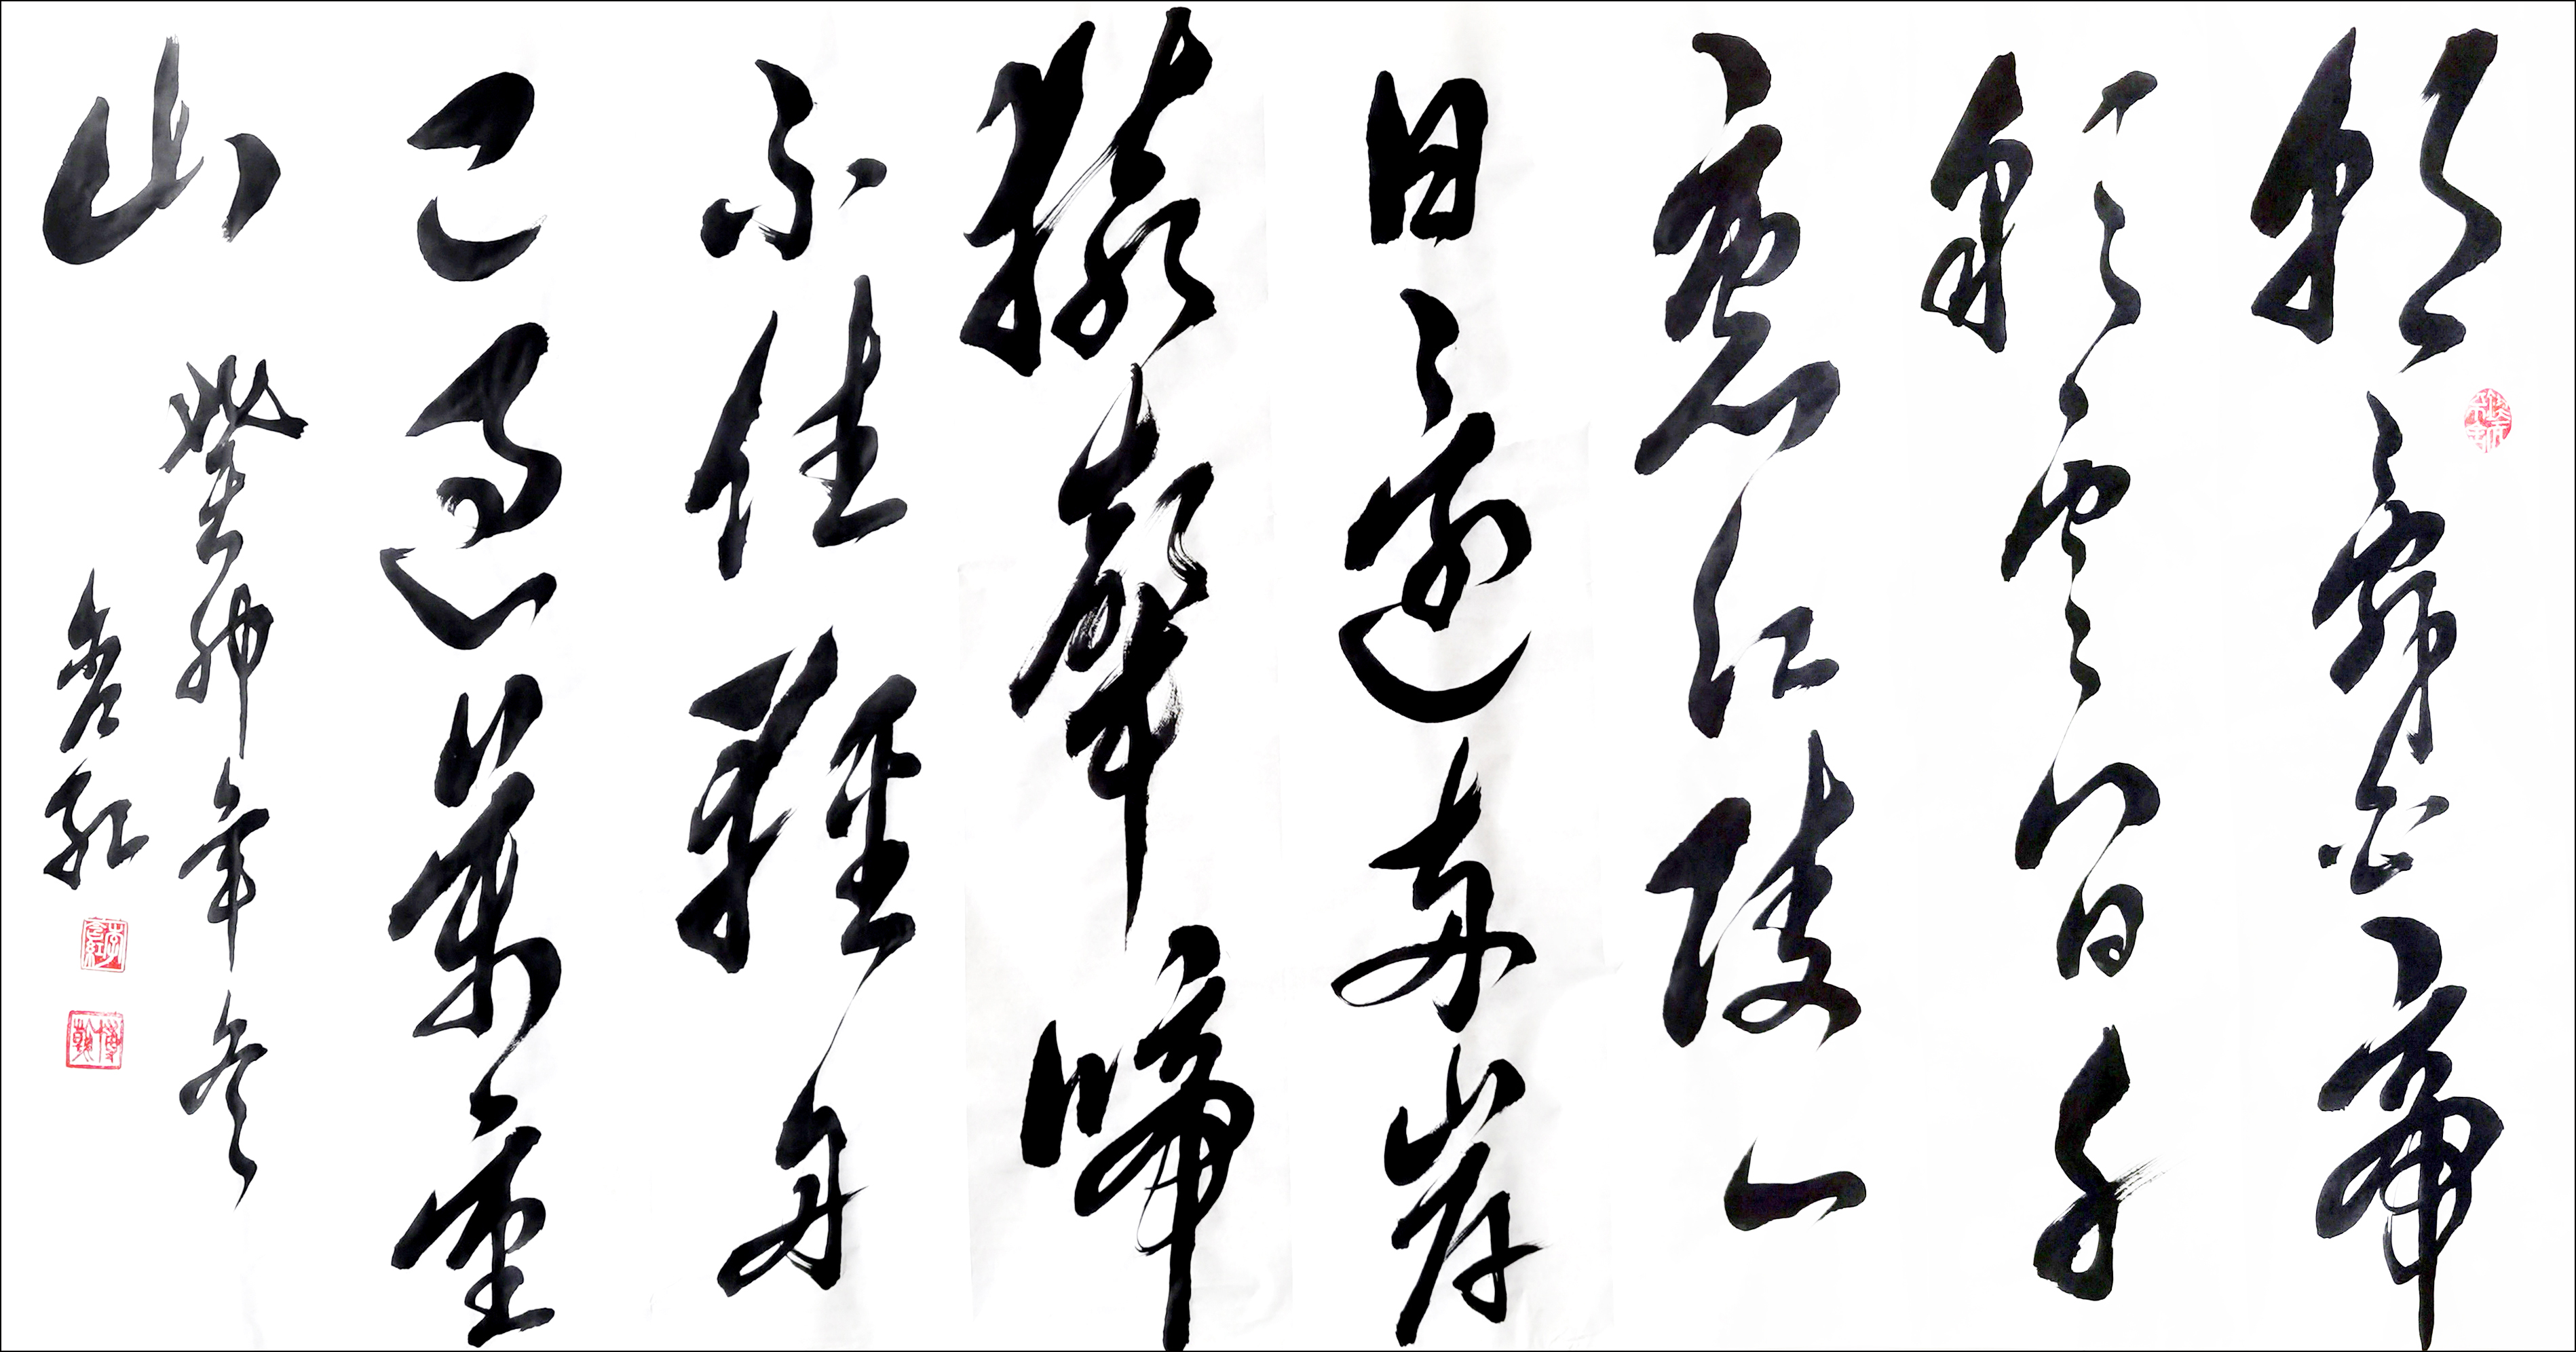 朝辭白帝
彩雲間千
裏江陵一
日還兩岸
猿聲啼
不住輕舟
已過萬重
山
癸卯年冬
紅
博翰